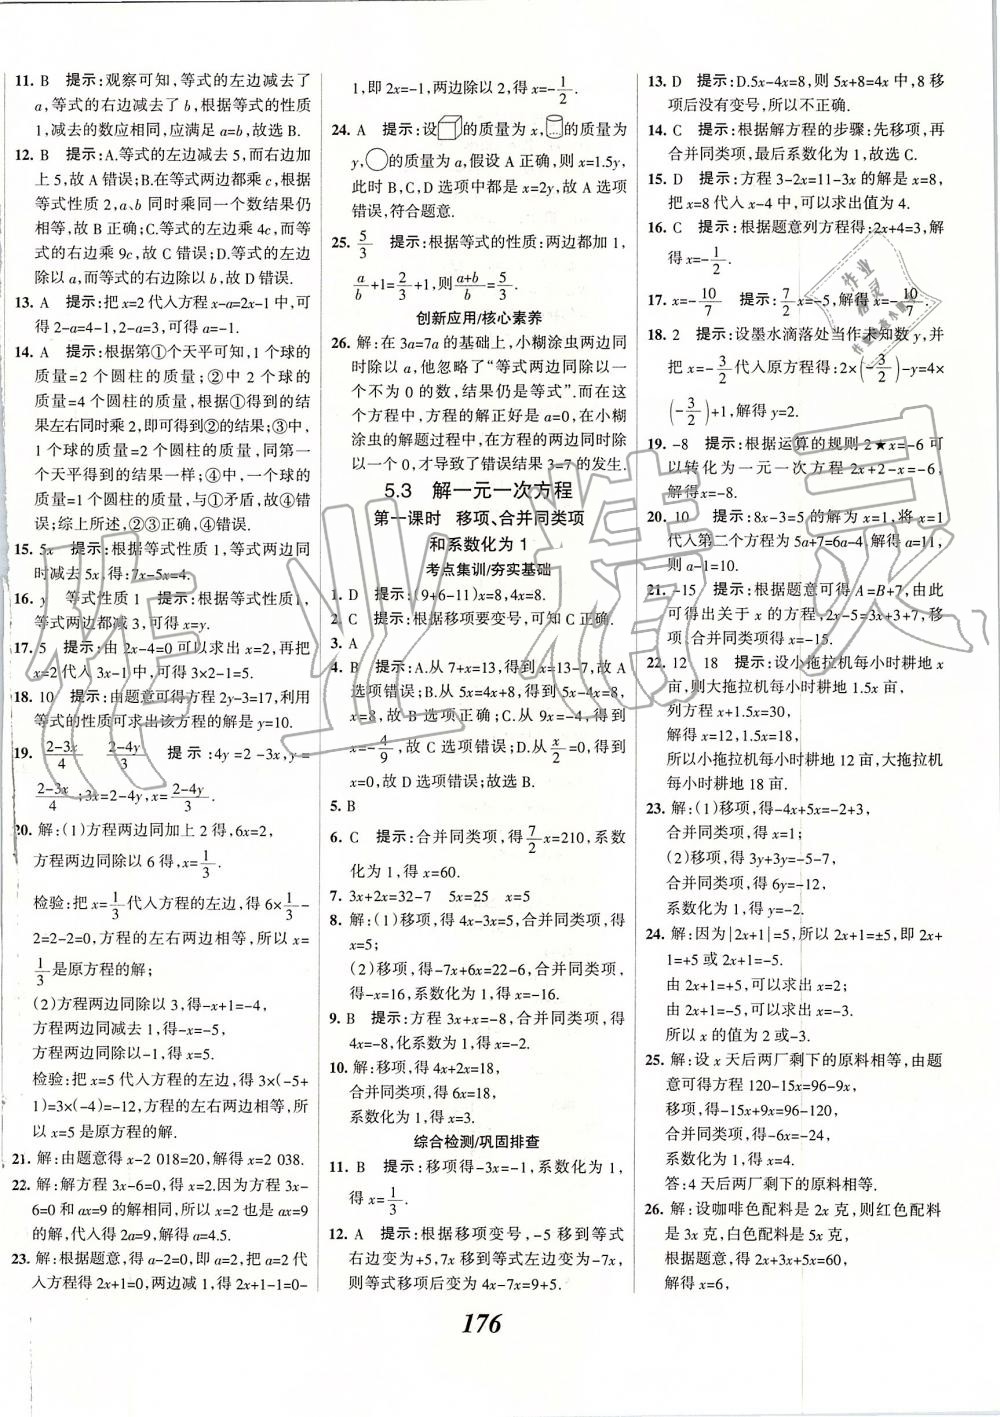 11. B　提示:观察可知,等式的左边减去了
a,等式的右边减去了 b,根据等式的性质
1,减去的数应相同,应满足 a=b,故选 B.
12. B　提示:A.等式的左边减去 5,而右边加
上 5,故 A 错误;B.在等式两边都乘 c,根据
等式性质 2,a、b 同时乘同一个数结果仍
相等,故 B 正确;C.等式的左边乘 4c,而等
式的右边乘 9c,故 C 错误;D.等式的左边
除以 a,而等式的右边除以 b,故 D 错误.
13. A　提示:把 x=2 代入方程 x-a=2x-1 中,可
得 2-a=4-1,2-a=3,可得 a=-1.
14. A　提示:根据第①个天平可知,1 个球的
质量=2 个圆柱的质量;②中 2 个球的
质量=4 个圆柱的质量,根据①得到的结
果左右同时乘 2,即可得到②的结果;③中,
1 个球的质量=2 个圆柱的质量,同第一
个天平得到的结果一样;④中,1 个球的质
量=1 个圆柱的质量,与①矛盾,故④错
误;综上所述,②③正确,④错误.
15. 5x　提示:根据等式性质 1,等式两边同
时减去 5x,得:7x-5x=4.
16. y　等式性质 1　提示:根据等式性质1,
等式两边都减 3,可得 x=y.
17. 5　提示:由 2x-4=0 可以求出 x=2,再把
x=2 代入 3x-1 中,可以求出值为 5.
18. 10　提示:由题意可得方程 2y-3=17,利用
等式的性质可求出该方程的解是 y=10.
19. \frac{2-3x}{4}　\frac{2-4y}{3}　提示:4y=2-3x,y=
\frac{2-3x}{4};3x=2-4y,x=\frac{2-4y}{3}.
20. 解:(1)方程两边同加上 2 得,6x=2,
方程两边同除以 6 得,x=\frac{1}{3}.
检验:把 x=\frac{1}{3}代入方程的左边,得 6×\frac{1}{3}-
2=2-2=0,方程的左右两边相等,所以 x=
\frac{1}{3}是原方程的解;
(2)方程两边同除以 3,得-x+1=-4,
方程两边同减去 1,得-x=-5,
方程两边同除以-1,得 x=5.
检验:把 x=5 代入方程的左边,得 3×(-5+
1)=3×(-4)=-12,方程的左右两边相等,所
以 x=5 是原方程的解.
21. 解:由题意得 x-2 018=20,解得 x=2 038.
22. 解:解方程 3x-6=0,得 x=2.因为方程 3x-
6=0 和 ax=9 的解相同,所以 x=2 也是 ax=9
的解,代入得 2a=9,解得 a=4.5.
23. 解:根据题意,得 a-2=0,即 a=2,把 a=2 代
入方程得 2x+1=0,两边减 1,得 2x+1-1=0-
1,即 2x=-1,两边除以 2,得 x=-\frac{1}{2}.
24. A　提示:设的质量为 x,的质量为
y,的质量为 a,假设 A 正确,则 x=1.5y,
此时 B,C,D 选项中都是 x=2y,故 A 选项
错误,符合题意.
25. \frac{5}{3}　提示:根据等式的性质:两边都加 1,
\frac{a}{b}+1=\frac{2}{3}+1,则\frac{a+b}{b}=\frac{5}{3}.
创新应用/核心素养
26. 解:在 3a=7a 的基础上,小糊涂虫两边同
时除以 a,他忽略了“等式两边同除以一
个不为 0 的数,结果仍是等式”.而在这
个方程中,方程的解正好是 a=0,在小糊
涂虫的解题过程中,在方程的两边同时除
以一个 0,才导致了错误结果 3=7 的发生.
5.3　解一元一次方程
第一课时　移项、合并同类项
和系数化为 1
考点集训/夯实基础
1. D　提示:(9+6-11)x=8,4x=8.
2. C　提示:根据移项要变号,可知 C 正确.
3. A
4. B　提示:A.从 7+x=13,得到 x=13-7,故 A
选项错误;B.从 5x=4x+8,得到 5x-4x=8,
x=8,故 B 选项正确;C.从 9x=-4,得到
x=-\frac{4}{9},故 C 选项错误;D.从\frac{x}{2}=0,得到
x=0,故 D 选项错误;故选 B.
5. B
6. C　提示:合并同类项,得\frac{7}{2}x=210,系数
化为 1,得 x=60.
7. 3x+2x=32-7　5x=25　x=5
8. 解:(1)移项,得 4x-3x=5,合并同类项,得
x=5;
(2)移项,得-7x+6x=22-6,合并同类项,
得-x=16,系数化为 1,得 x=-16.
9. B　提示:方程 3x+x=-8,合并同类项,得
4x=-8,化系数为 1,得 x=-2.
10. 解:移项,得 4x+2x=18,
合并同类项,得 6x=18,
系数化为 1,得 x=3.
综合检测/巩固排查
11. B　提示:移项得-3x=-1,系数化为 1,
得 x=\frac{1}{3}.
12. A　提示:根据移项变号,-5 移到等式
右边变为+5,7x 移到等式左边变为-7x,
则等式移项后变为 4x-7x=9+5.
13. D　提示:D.5x-4x=8,则 5x+8=4x 中,8 移
项后没有变号,所以不正确.
14. C　提示:根据解方程的步骤:先移项,再
合并同类项,最后系数化为 1,故选 C.
15. D　提示:方程 3-2x=11-3x 的解是 x=8,
把 x=8 代入 x-4 中,可以求出值为 4.
16. C　提示:根据题意列方程得:2x+4=3,解
得 x=-\frac{1}{2}.
17. x=-\frac{10}{7}　提示:\frac{7}{2}x=-5,解得 x=-\frac{10}{7}.
18. 2　提示:设墨水滴落处当作未知数 y,并
把 x=-\frac{3}{2}代入原方程得:2×(-\frac{3}{2})-y=4×
(-\frac{3}{2})+1,解得 y=2.
19. -8　提示:根据运算的规则 2★x=-6 可
以转化为一元一次方程 2x+2-x=-6,
解得 x=-8.
20. 10　提示:8x-3=5 的解为 x=1,将 x=1
代入第二个方程为 5a+7=6a-4,解得 a=11,
则 a-1=10.
21. -15　提示:根据题意可得 A=B+7,由此
可得出关于 x 的方程,2x-5=3x+3+7,移
项、合并同类项得 x=-15.
22. 12　18　提示:设小拖拉机每小时耕地 x
亩,则大拖拉机每小时耕地 1.5x 亩,
列方程 x+1.5x=30,
解得 x=12,1.5x=18,
所以小拖拉机每小时耕地 12 亩,大拖拉机
每小时耕地 18 亩.
23. 解:(1)移项,得-4x+5x=-2+3,
合并同类项,得 x=1;
(2)移项,得 3y+3y=-5-7,
合并同类项,得 6y=-12,
系数化为 1,得 y=-2.
24. 解:因为|2x+1|=5,所以 2x+1=±5,即 2x
+1=+5 或 2x+1=-5.
由 2x+1=+5,可以求出 x=2;
由 2x+1=-5,可以求出 x=-3.
所以 x 的值为 2 或-3.
25. 解:设 x 天后两厂剩下的原料相等,由题
意可得方程 120-15x=96-9x,
移项,得-15x+9x=96-120,
合并同类项,得-6x=-24,
系数化为 1,得 x=4.
答:4 天后两厂剩下的原料相等.
26. 解:设咖啡色配料是 2x 克,则红色配料
是 3x 克,白色配料是 5x 克,
根据题意,得 2x+3x+5x=60,
解得 x=6,
176
作业精灵